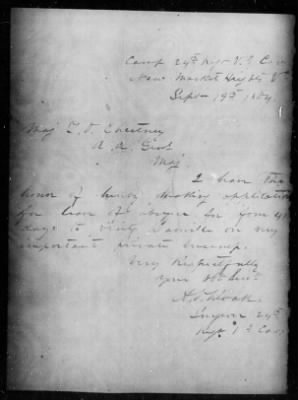 Camp 24th Regt Va Cav
New Market Heights Va
Sept 19th 1864
Maj T. O. Chestney
A. A. Genl
Maj
I have the
honor of hereby making application
for leave of absence for four
days to visit Danville on very
important private business.
Very Respectfully
Your Obt Servt
Surgeon 24th
Regt Va Cav